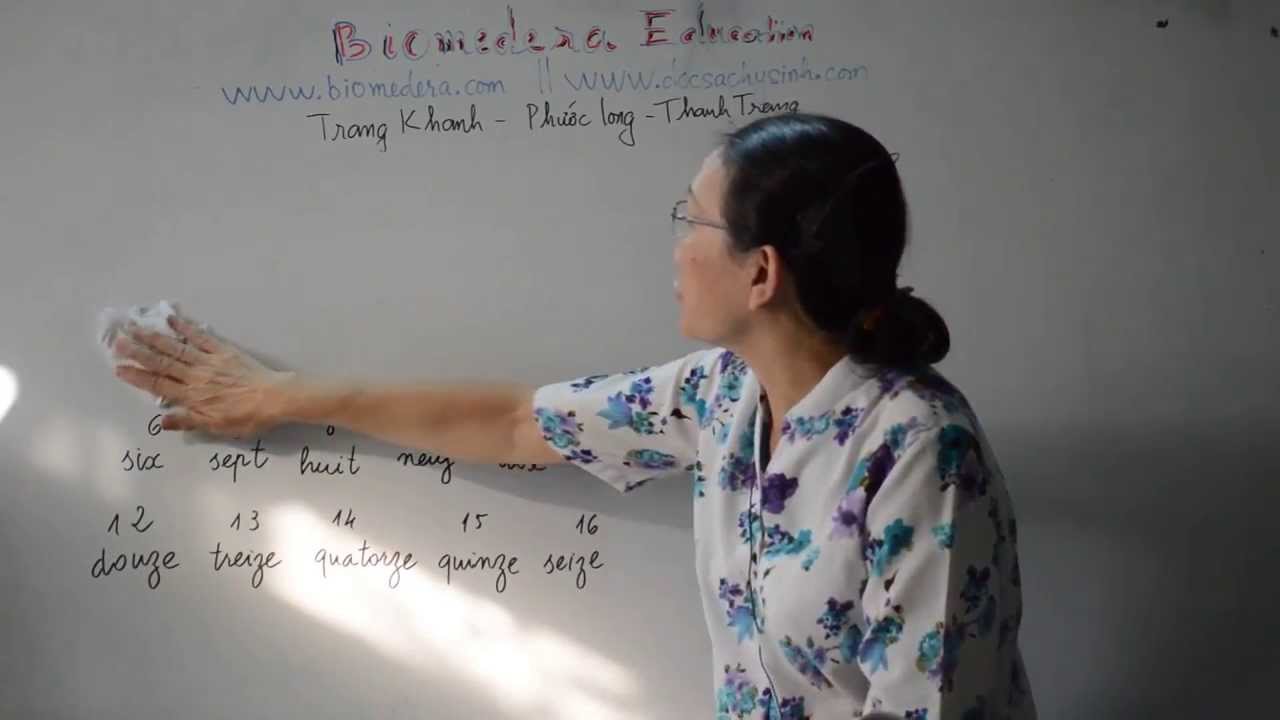 Biomedera Education
www.biomedera.com || www.docsachysinh.com
Trang Khanh - Phước long - Thanh Trang
6
six sept huit neuf
12 13 14 15 16
douze treize quatorze quinze seize